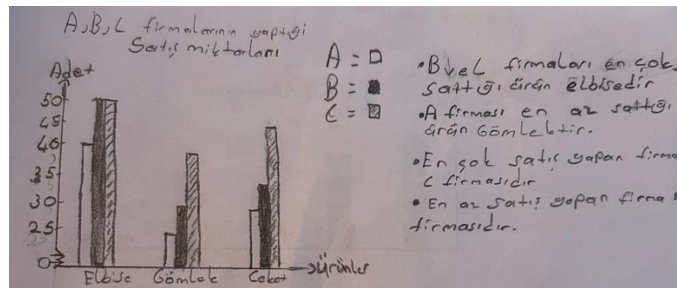 A,B,C firmalarının yaptığı
Satış miktarları
A =
B =
C =
Adet
50
45
40
35
30
25
0
Elbise Gömlek Ceket
Ürünler
• B ve C firmaları en çok
sattığı ürün elbisedir
• A firması en az sattığı
ürün Gömlektir.
• En çok satış yapan firma
C firmasıdır
• En az satış yapan firma
firmasıdır.